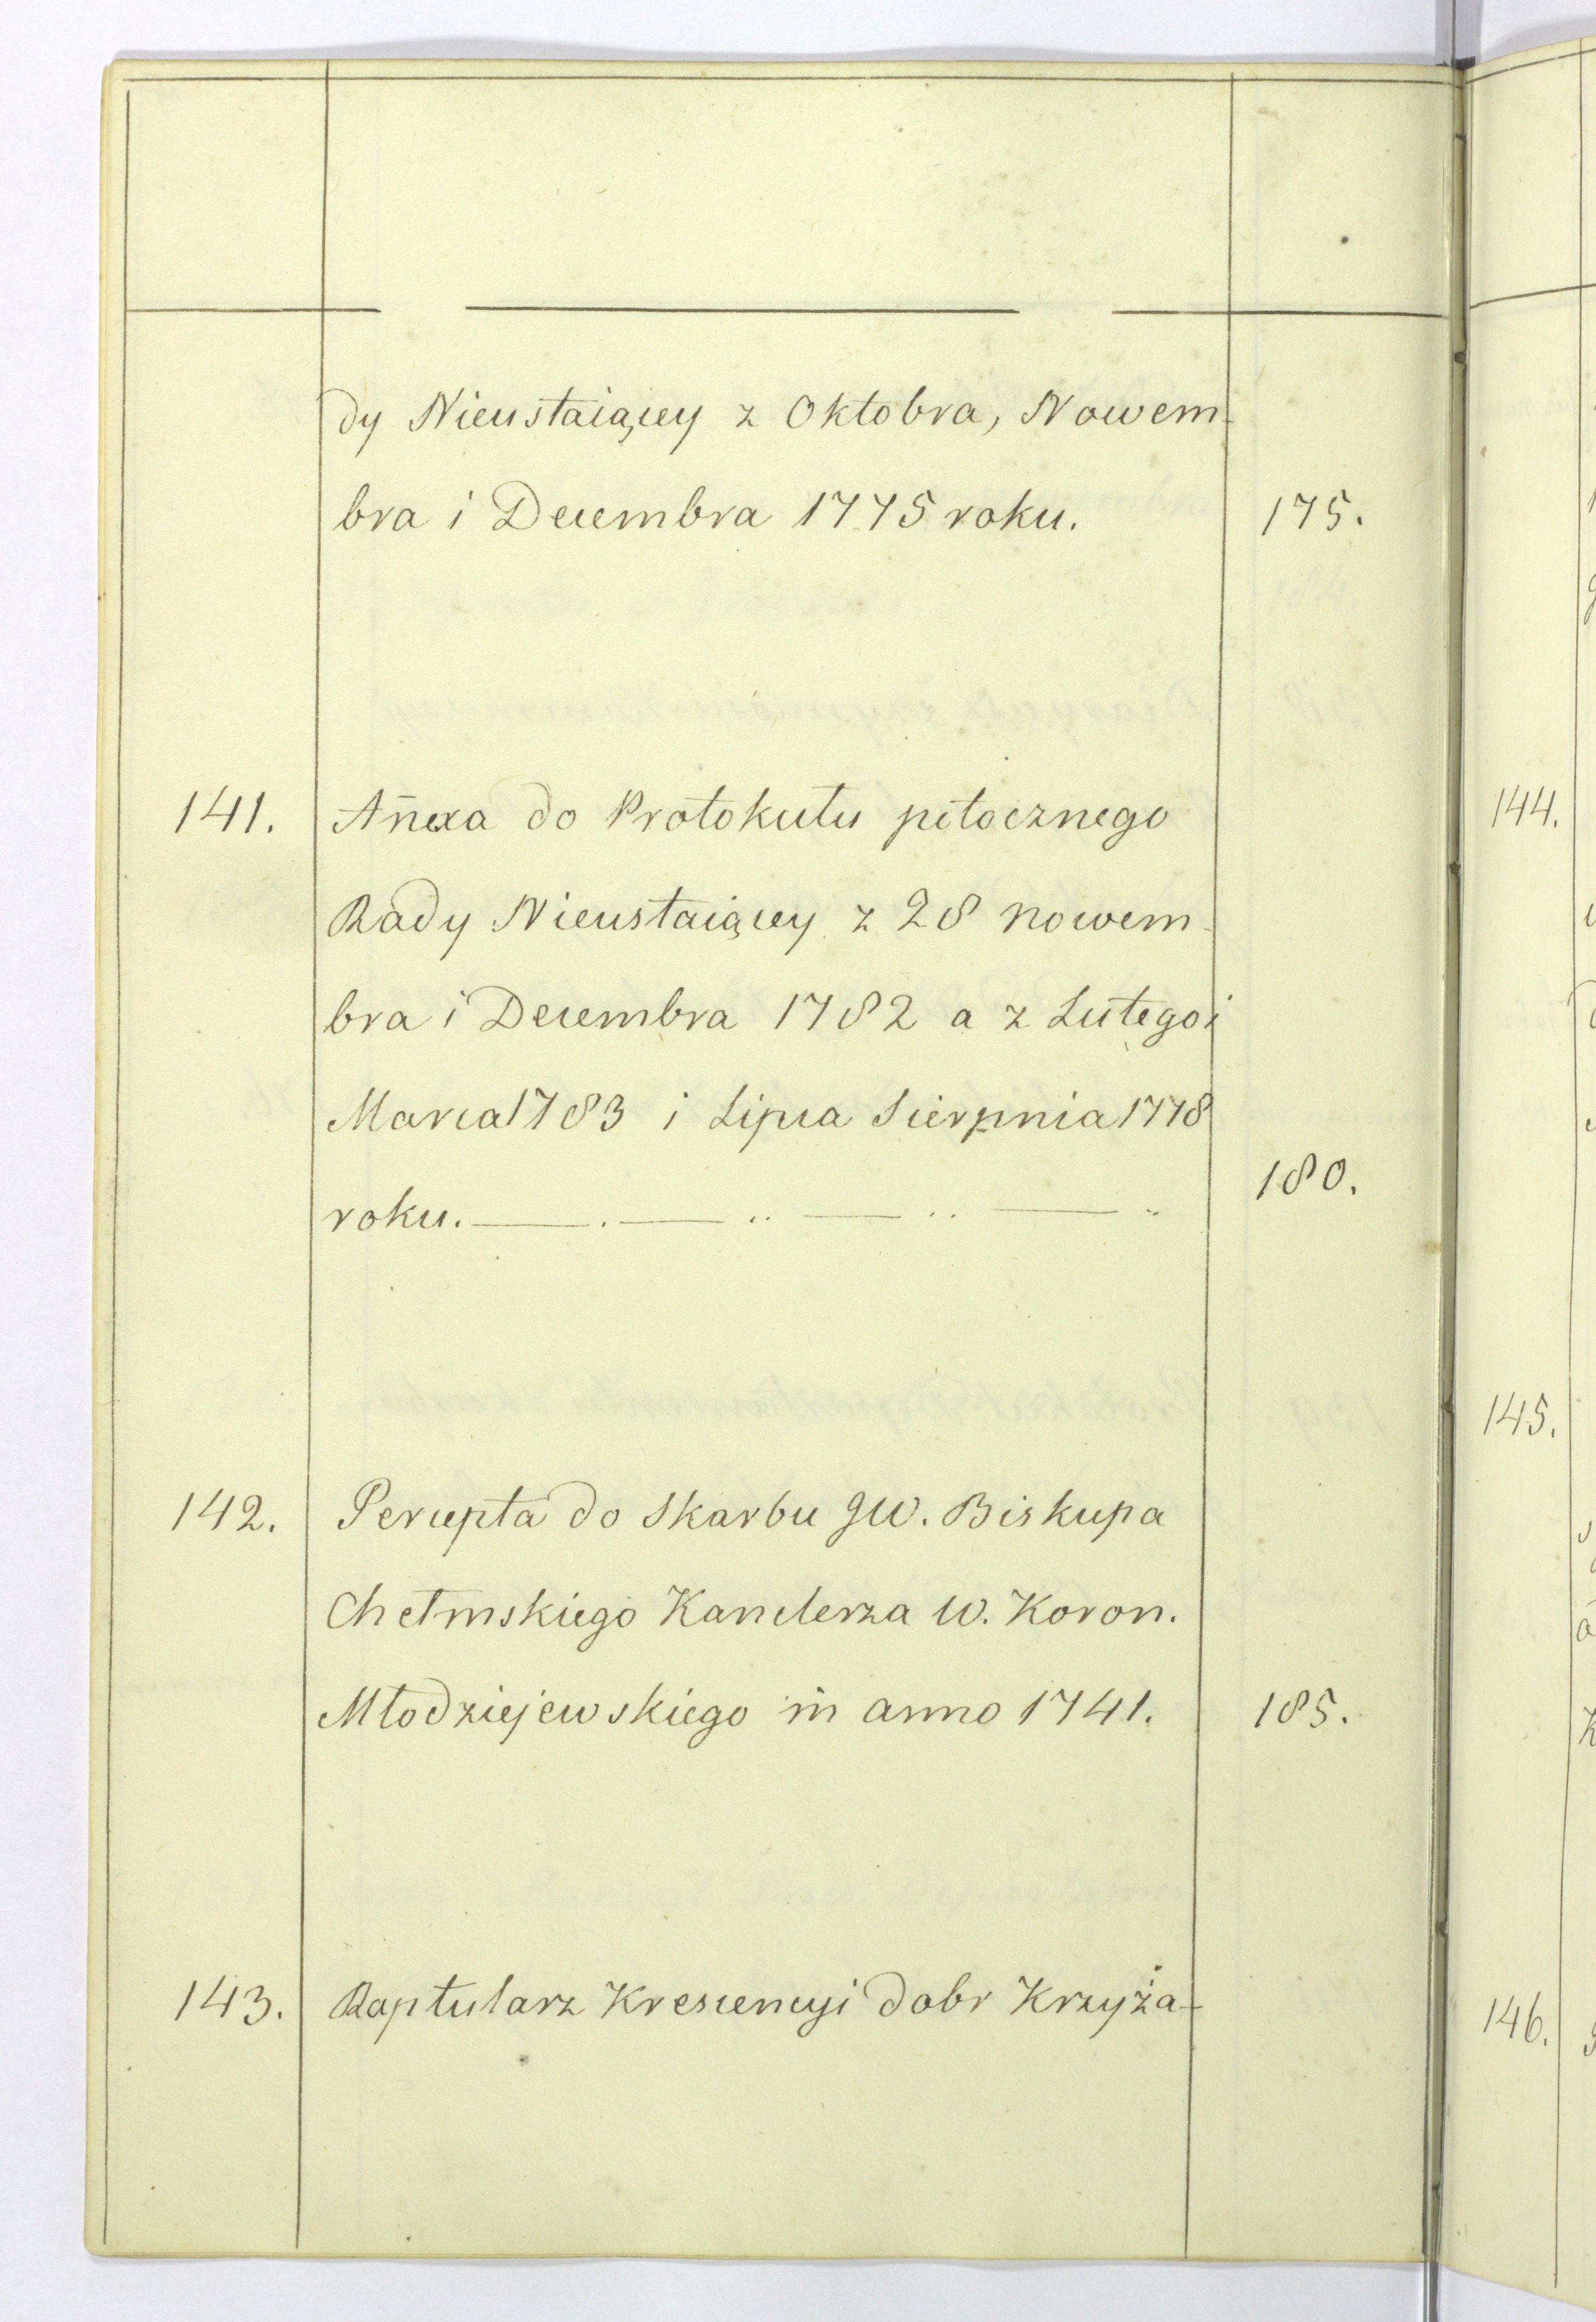 dy Nieustaiącey z Oktobra, Nowem-
bra i Decembra 1775 roku. 175.
141. An̄exa do Protokułu potocznego
Rady Nieustaiącey z 28 nowem-
bra i Decembra 1782 a z Lutego i
Marca 1783 i Lipca Sierpnia 1778
roku. 180.
142. Percepta do Skarbu JW. Biskupa
Chełmskiego Kanclerza W. Koron.
Młodziejewskiego in anno 1741. 185.
143. Raptularz Krescencyi dobr Krzyża-
144.
145.
146.